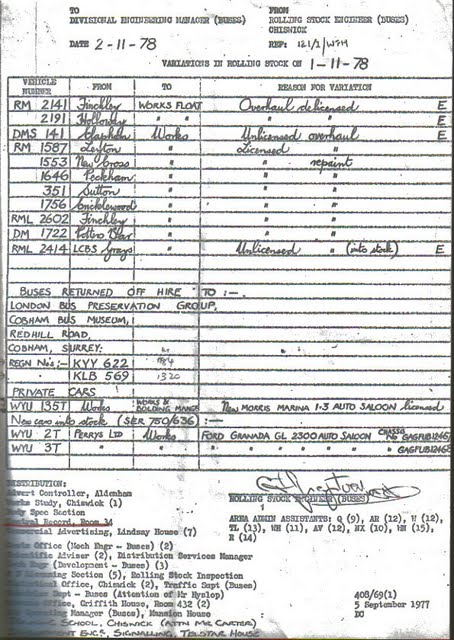 TO
DIVISIONAL ENGINEERING MANAGER (BUSES)
FROM
ROLLING STOCK ENGINEER (BUSES)
CHISWICK
DATE 2-11-78
REF: 121/1/WFM
VARIATIONS IN ROLLING STOCK ON 1-11-78
VEHICLE NUMBER FROM TO REASON FOR VARIATION
RM 2141 Finchley WORKS FLOAT Overhaul delicensed E
2191 Holloway " " " " E
DMS 141 Clapham Works Unlicensed overhaul E
RM 1587 Leyton " Licensed "
1553 New Cross " " repaint
1646 Peckham " " "
351 Sutton " " "
1756 Cricklewood " " "
RML 2602 Finchley " " "
DM 1722 Potters Bar " " "
RML 2414 LCBS Grays " Unlicensed " (into stock) E
BUSES RETURNED OFF HIRE TO :-.
LONDON BUS PRESERVATION GROUP,
COBHAM BUS MUSEUM,
REDHILL ROAD,
COBHAM, SURREY:
REGN No's :- KYY 622 984
KLB 569 1320
PRIVATE CARS
WYU 135T Works WORKS & BUILDING MANGR New MORRIS MARINA 1·3 AUTO SALOON licensed
New cars into stock (SER 750/636) :-
WYU 2T PERRYS LTD Works FORD GRANADA GL 2300 AUTO SALOON CHASSIS No GAGFUB1246/
WYU 3T " " " " " " " " GAGFUB12468
DISTRIBUTION:
Advert Controller, Aldenham
Works Study, Chiswick (1)
Body Spec Section
Central Record, Room 34
Commercial Advertising, Lindsay House (7)
Costs Office (Mech Engr - Buses) (2)
Scientific Adviser (2), Distribution Services Manager
Mech Engr (Development - Buses) (3)
Licensing Section (5), Rolling Stock Inspection
Technical Office, Chiswick (2), Traffic Dept (Buses)
Dept - Buses (Attention of Mr Hyslop)
Office, Griffith House, Room 432 (2)
Operating Manager (Buses), Mansion House
SCHOOL, CHISWICK (ATTN MR CARTER)
ENGR, SIGNALLING, TELSTAR HOUSE
ROLLING STOCK ENGINEER (BUSES)
AREA ADMIN ASSISTANTS: Q (9), AR (12), W (12),
TL (13), WH (11), AV (12), NX (10), HN (15),
R (14)
408/69(1)
5 September 1977
DO